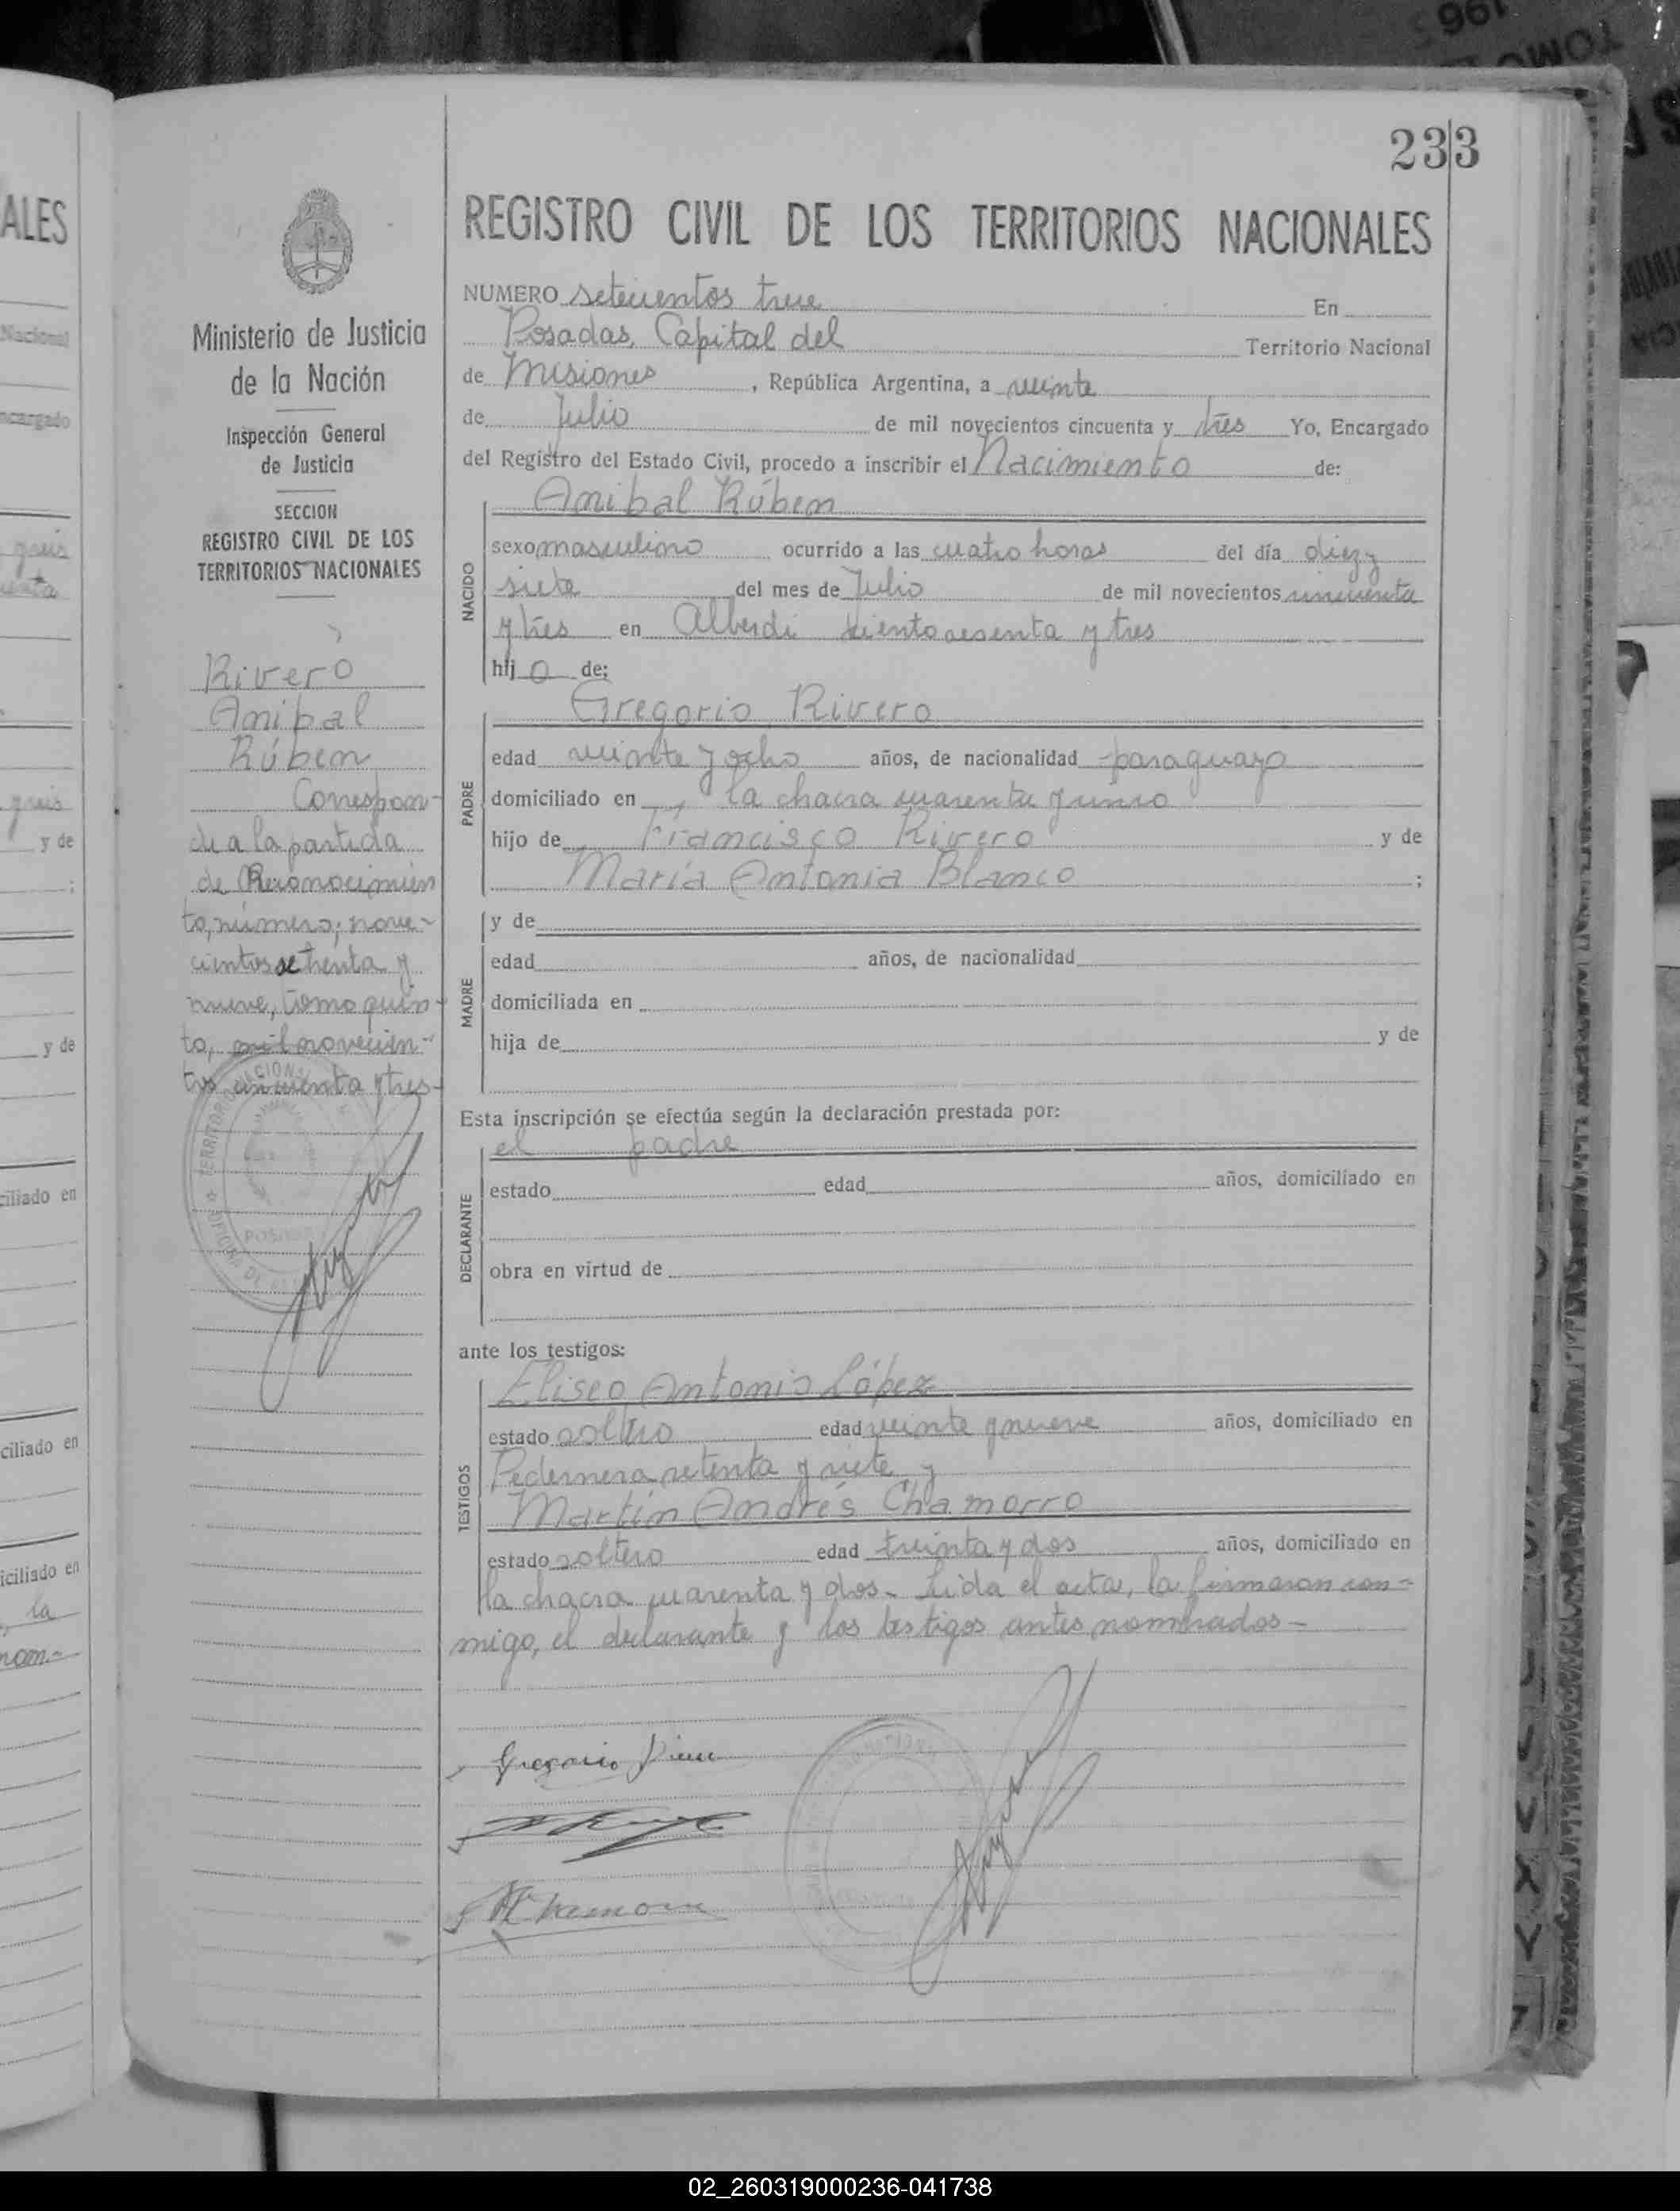 233
REGISTRO CIVIL DE LOS TERRITORIOS NACIONALES
Ministerio de Justicia
de la Nación
Inspección General
de Justicia
SECCION
REGISTRO CIVIL DE LOS
TERRITORIOS NACIONALES
Rivero
Anibal
Rúben
Correspon-
de a la partida
de Reconocimien
to, número; nove-
cientos setenta y
nueve, tomo quin-
to, mil novecien-
tos cincuenta y tres-
NUMERO setecientos trece En
Posadas, Capital del Territorio Nacional
de Misiones, República Argentina, a veinte
de Julio de mil novecientos cincuenta y tres Yo, Encargado
del Registro del Estado Civil, procedo a inscribir el Nacimiento de:
NACIDO
Anibal Rúben
sexo masculino ocurrido a las cuatro horas del día diez y
siete del mes de Julio de mil novecientos cincuenta
y tres en Alberdi ciento sesenta y tres
hij o de:
PADRE
Gregorio Rivero
edad veinte y ocho años, de nacionalidad paraguayo
domiciliado en la chacra cuarenta y cinco
hijo de Francisco Rivero y de
María Antonia Blanco ;
MADRE
y de
edad años, de nacionalidad
domiciliada en
hija de y de
Esta inscripción se efectúa según la declaración prestada por:
DECLARANTE
el padre
estado edad años, domiciliado en
obra en virtud de
ante los testigos:
TESTIGOS
Eliseo Antonio López
estado soltero edad veinte y nueve años, domiciliado en
Pedernera setenta y siete y
Martín Andrés Chamorro
estado soltero edad treinta y dos años, domiciliado en
la chacra cuarenta y dos- Leída el acta, la firmaron con-
migo, el declarante y los testigos antes nombrados-
Gregorio Rivero
Chamorro
02_260319000236-041738